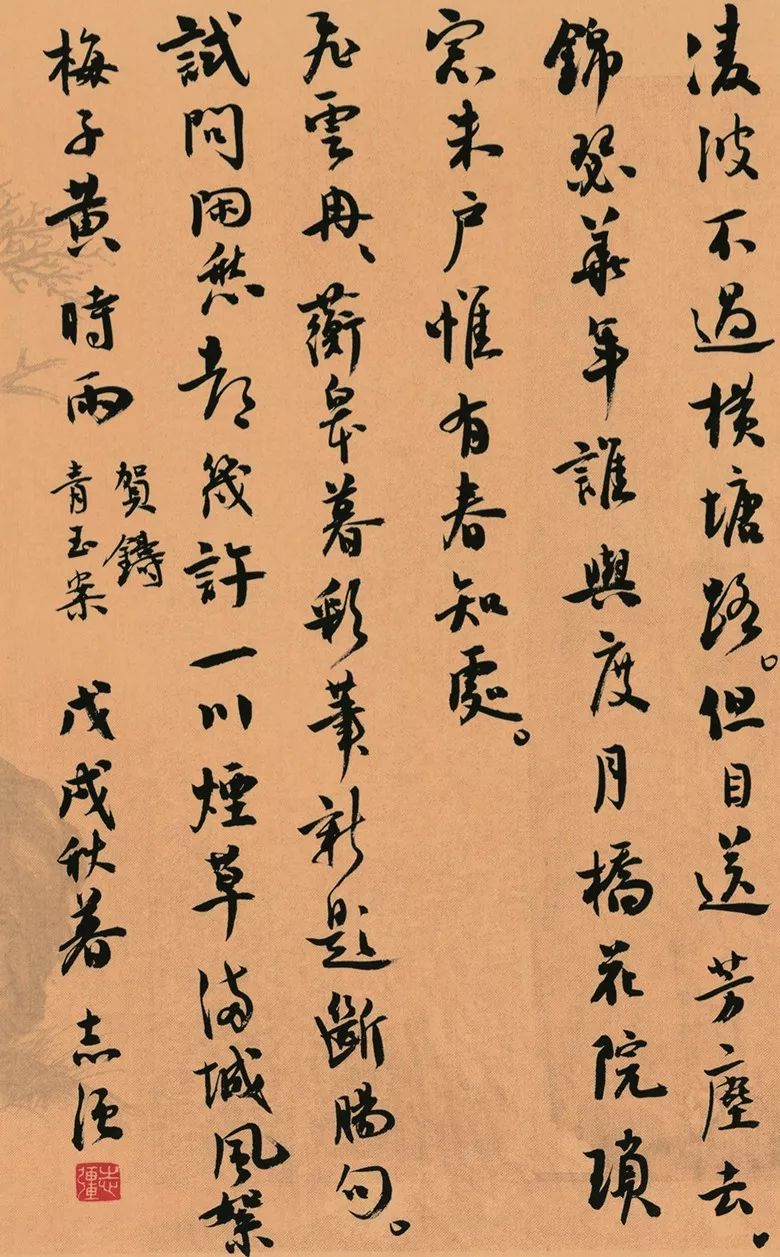 凌波不過橫塘路。但目送芳塵去。
錦瑟華年誰與度月橋花院瑣
窓朱户惟有春知處。
飛雲冉、蘅皋暮彩筆新題斷腸句。
試問閑愁都幾許一川煙草滿城風絮
梅子黃時雨
賀鑄
青玉案
戊戌秋暮 志